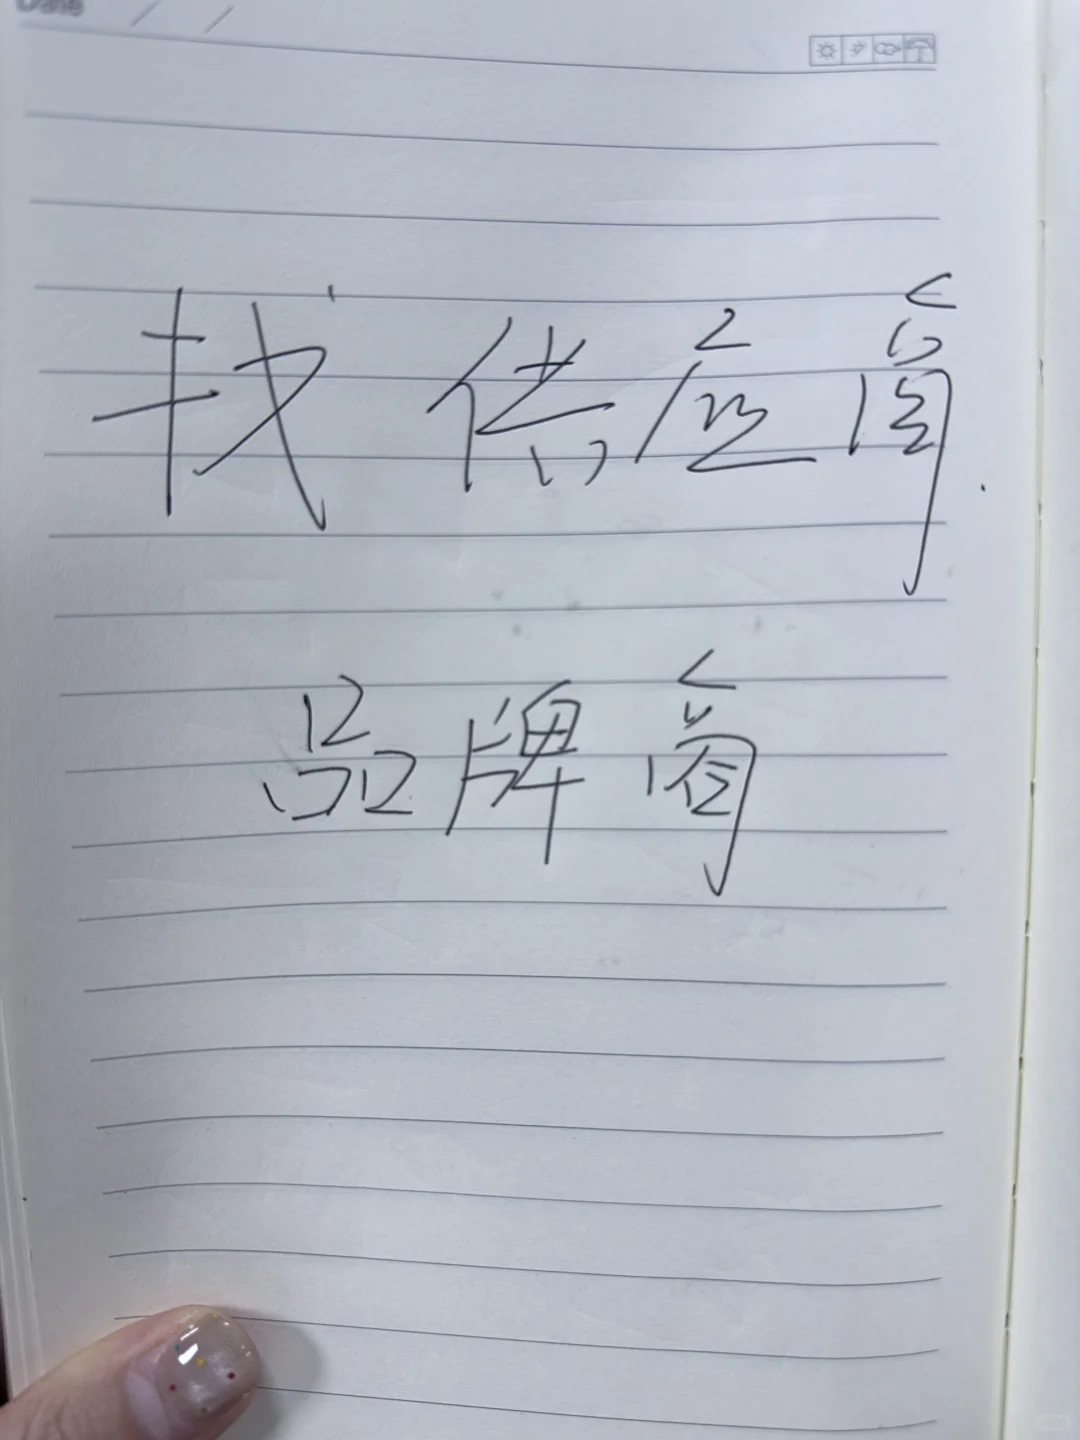 Date / /
找供应商
品牌商